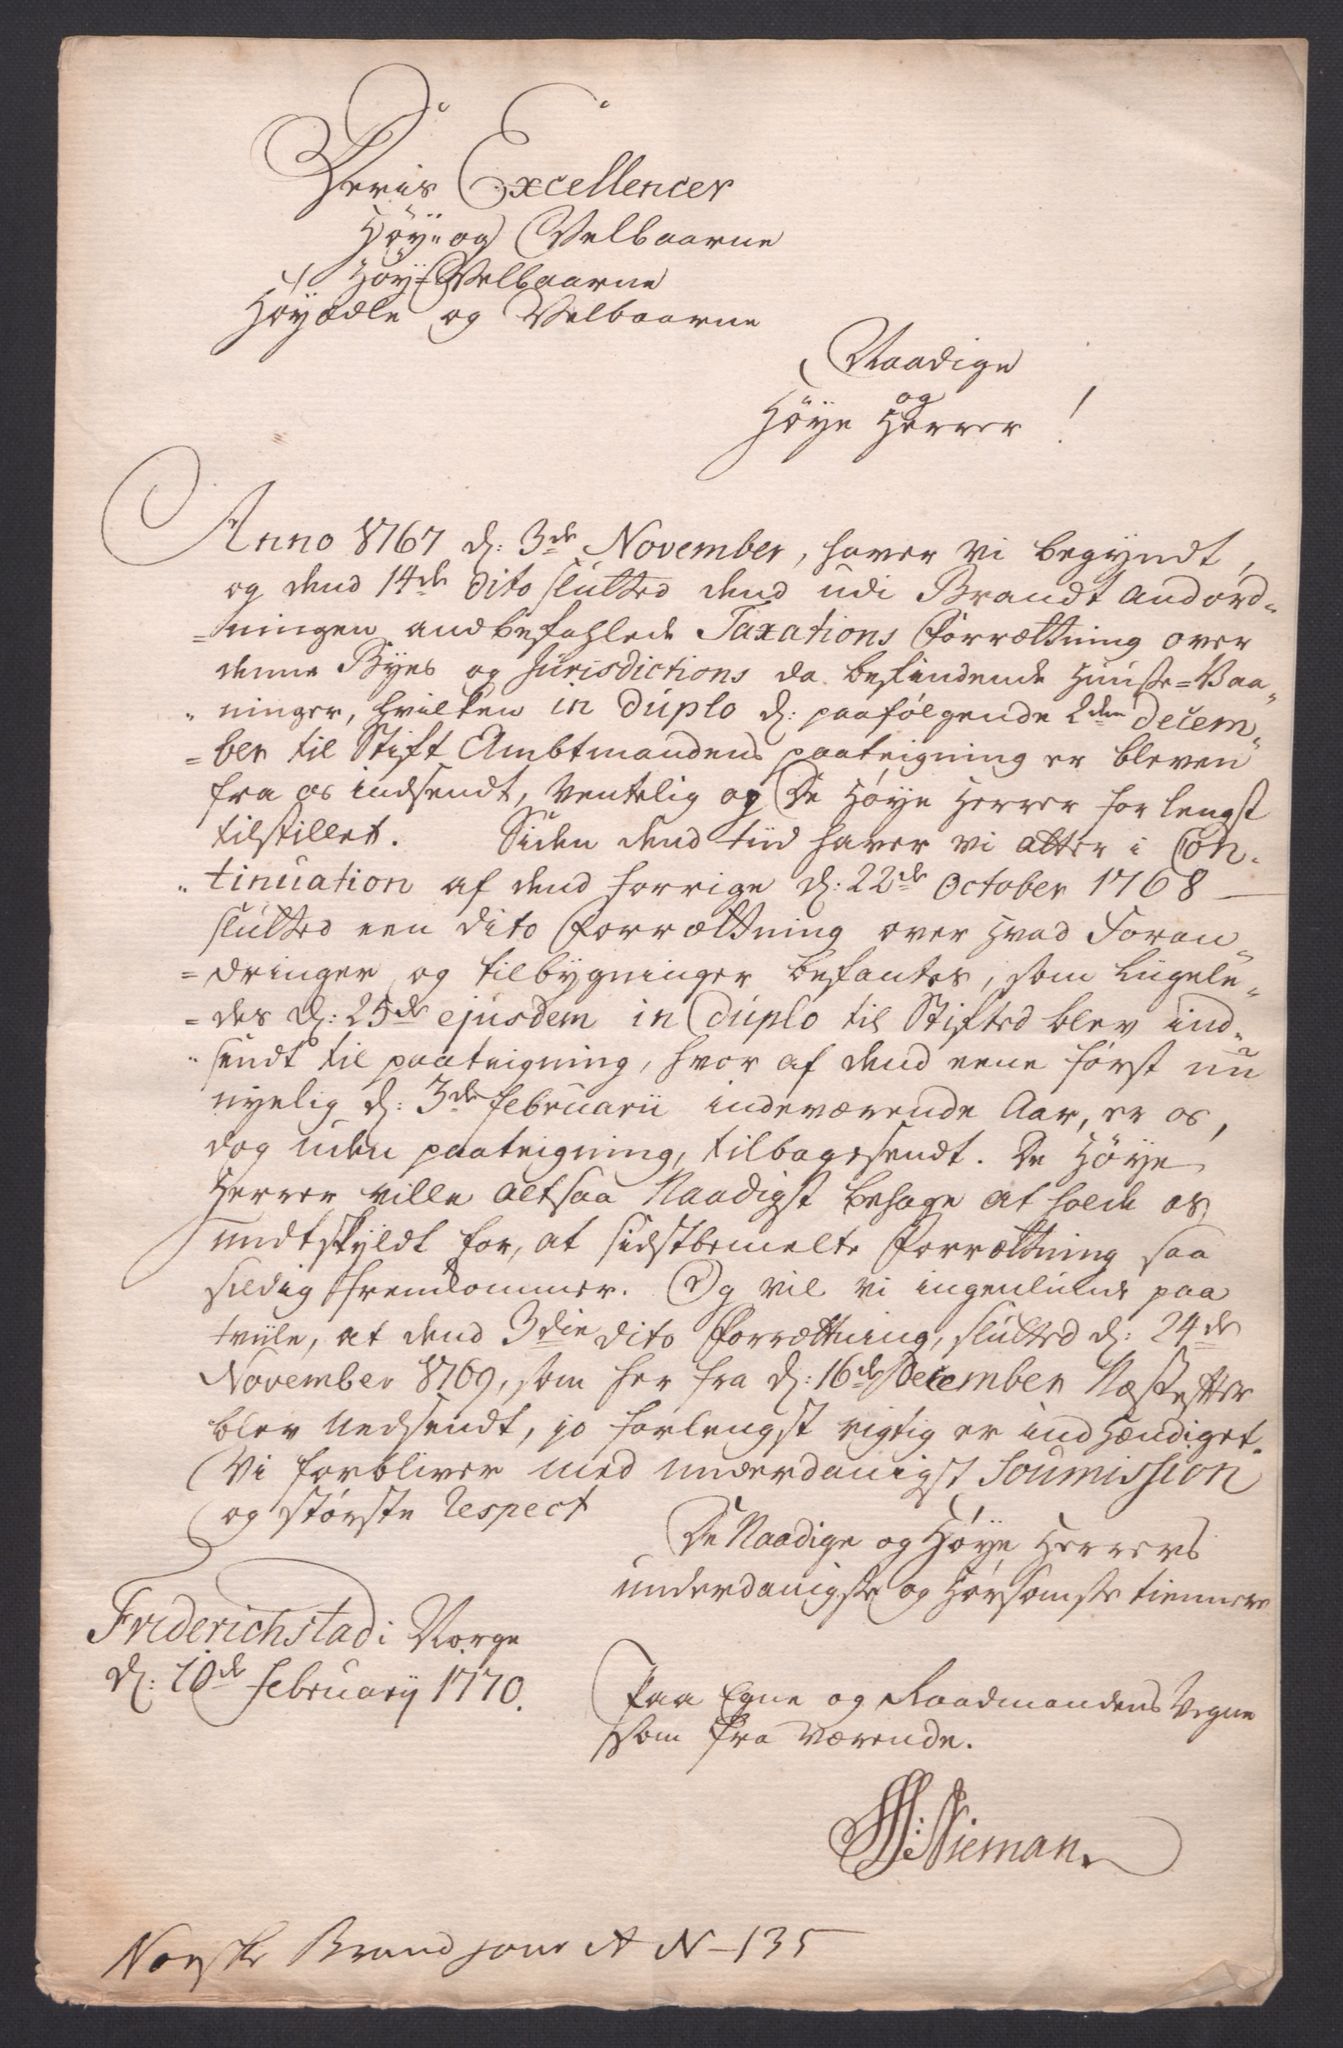 Deris Excellencer
Höy- og Velbaarne
Höy-Velbaarne
Höyædle og Velbaarne
Naadige
og
Höye Herrer !
Anno 1767 d: 3de November, haver vi begyndt,
og dend 14de dito slutted dend udi Brandt Anord-
=ningen anbefahlede Taxations Forrættning over
denne Byes og Jurisdictions da befindende Huuse=Baa-
ninger, hvilken in duplo d: paafølgende 2den Decem-
=ber til Stift Ambtmandens paateigning er bleven
fra os indsendt, Ventelig og De Høye Herrer for lengst
tilstillet. Siden dend tiid haver vi atter i Con-
tinuation af dend forrige d: 22de October 1768
slutted een dito Forrættning over hvad Foran-
=dringer og tilbygninger befantes, som liigele-
=des d: 25de ejusdem in duplo til Stifted blev ind-
sendt til paateigning, hvor af dend eene først nu
nyelig d: 3de februarii indeværende Aar, er os,
dog uden paateigning, tilbagesendt. De Høye
Herrer ville altsaa Naadigst behage at holde os
undtskyldt for, at sidstbemelte Forrættning saa
sildig fremkommer. Og vil vi ingenlunde paa
tvile, at dend 3die dito Forrættning, slutted d: 24de
November 1769, som her fra d: 16de December Næstefter
blev Nedsendt, jo forlengst rigtig er indhændiget.
Vi forbliver med underdanigst Soumission
og største Respect
De Naadige og Høye Herrers
underdanigste og Hørsomste tiennere
Friderichstad i Norge
d: 10de februarij 1770.
Paa Egne og Raadmandens Vegne
som fra værende.
Nieman
Norske Brand N 135